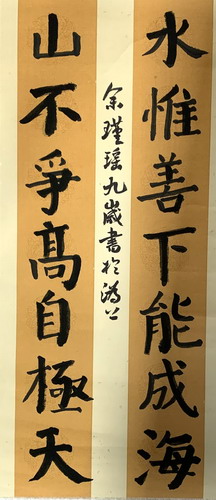 水惟善下能成海
山不爭髙自極天
余瑾瑶九歲書於鴻公